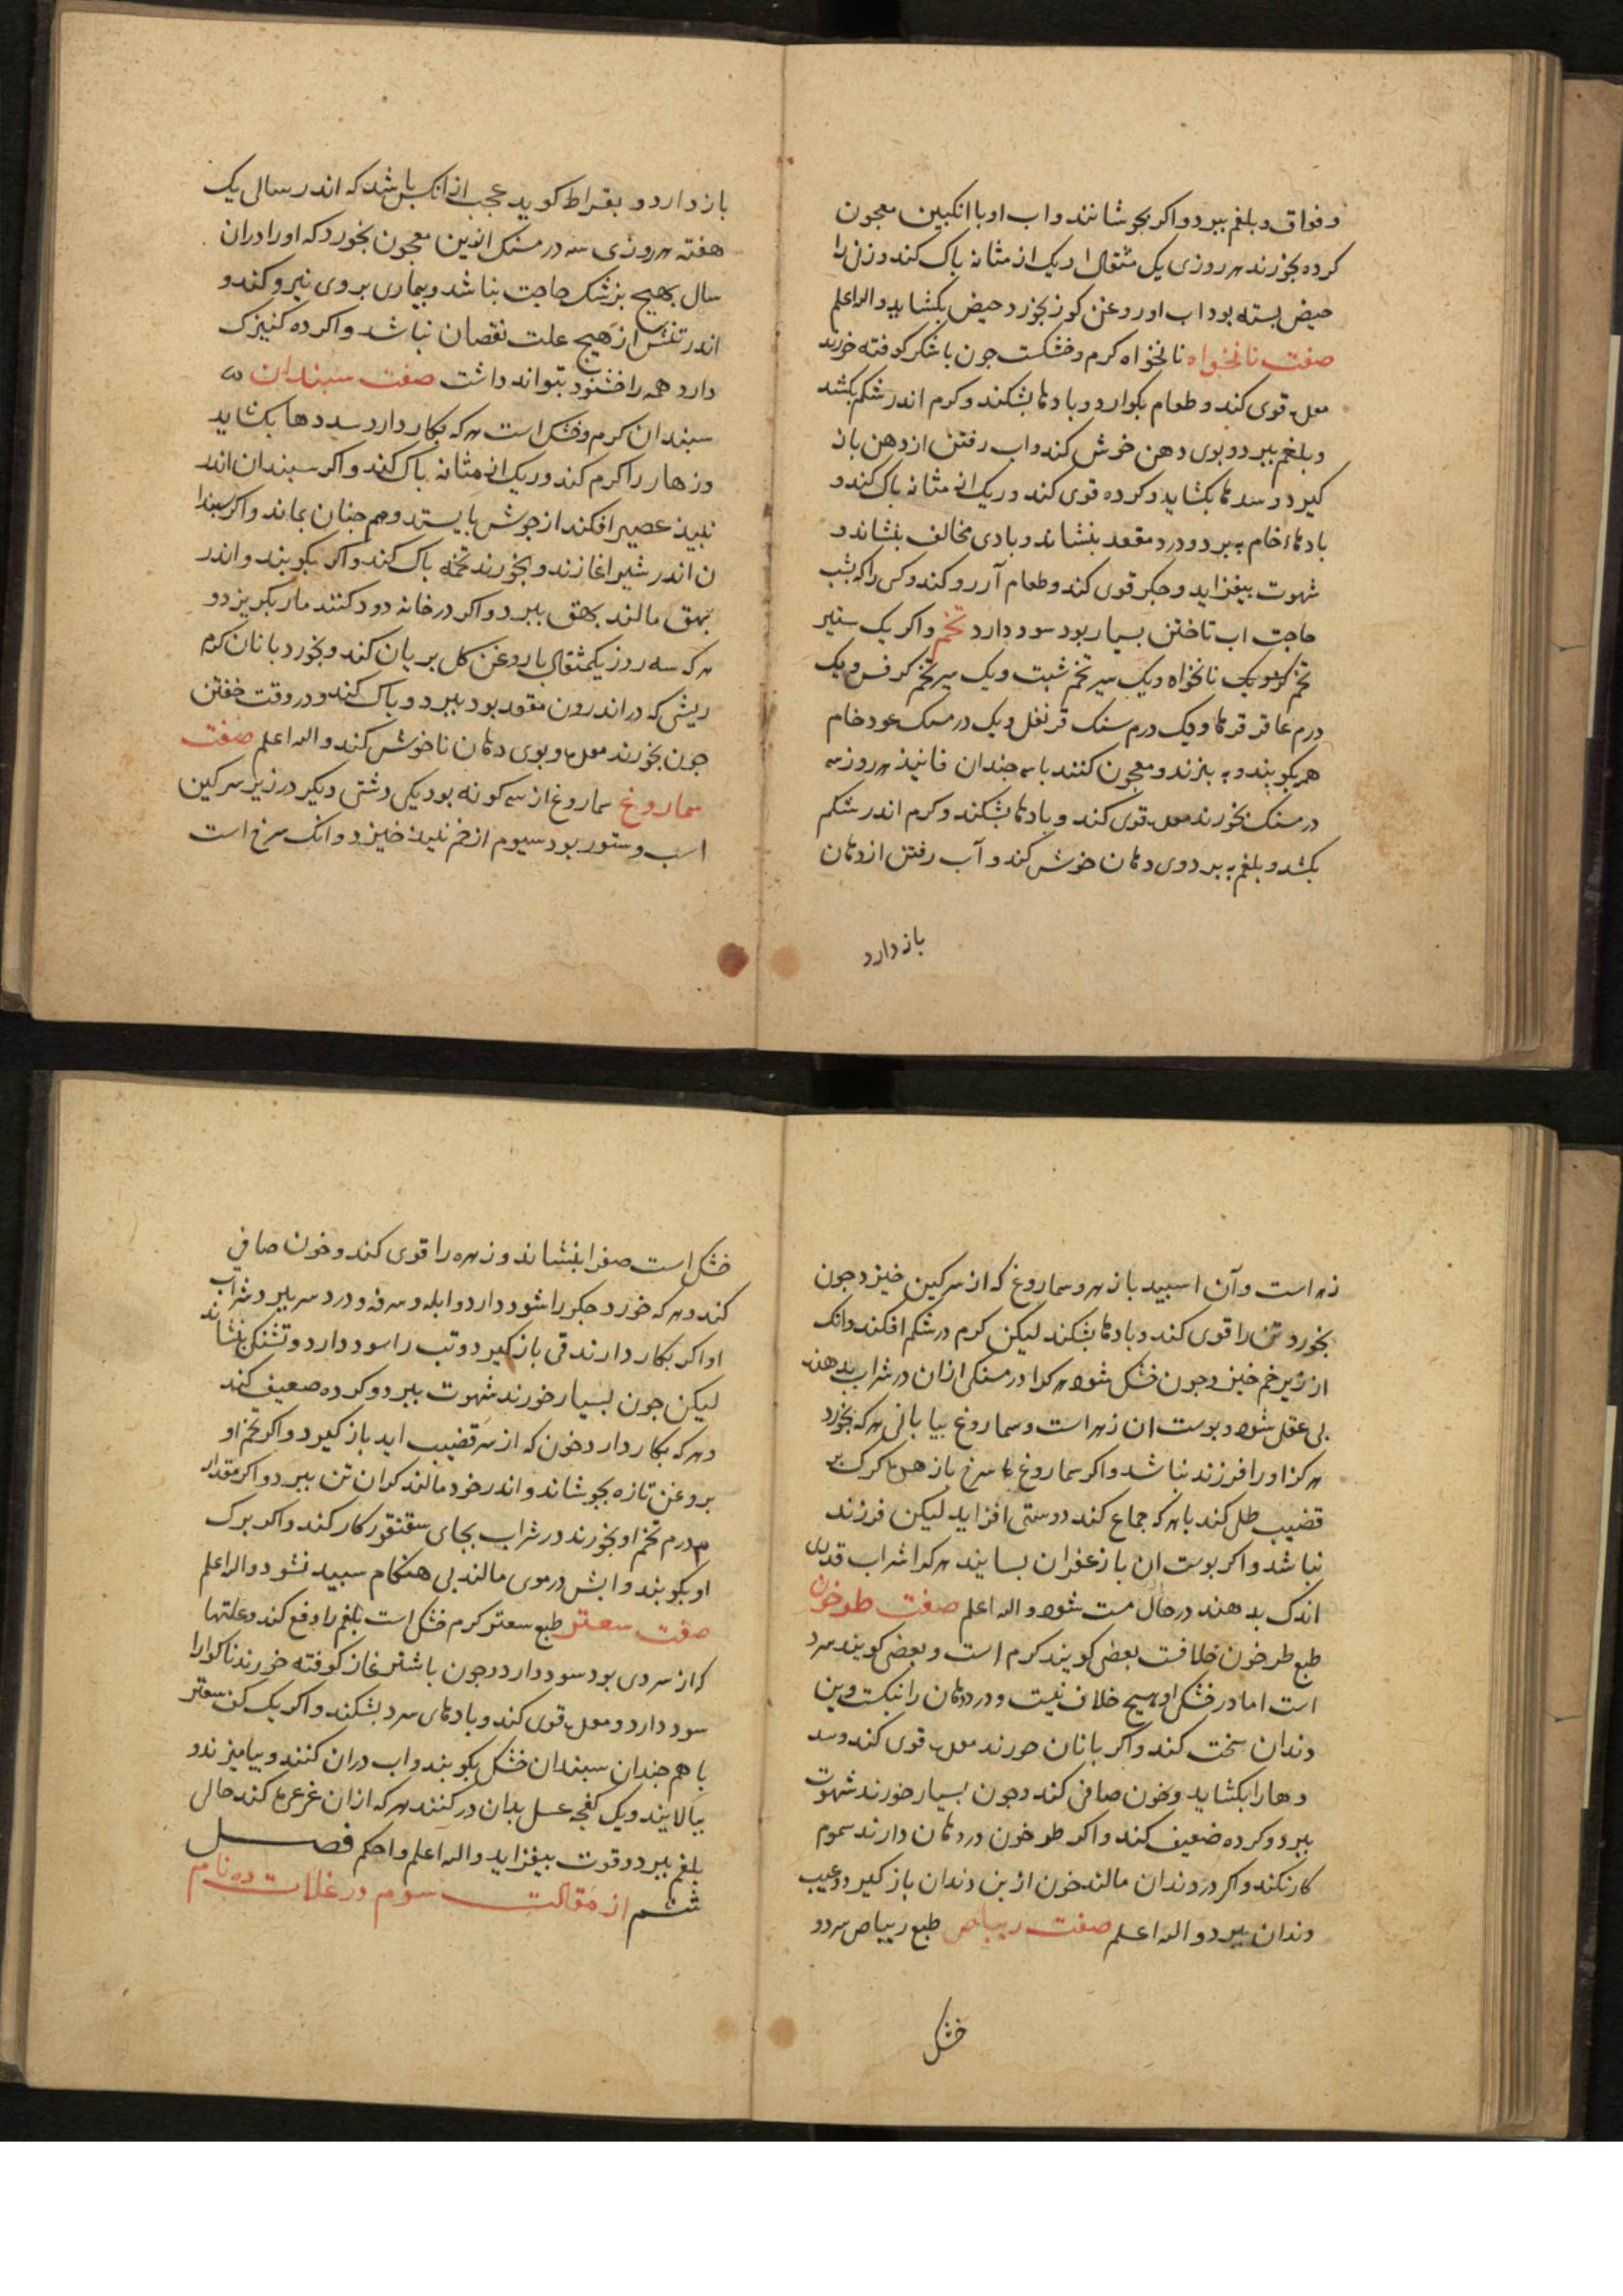 و فواق و بلغم ببرد و اکر بجوشانند و اب او با انکبین معجون
کرده بخورند هر روزی یک مثقال او ریک از مثانه باک کند و زن را
حیض بسته بود اب او روغن کوز بخورد حیض بکشاید والله اعلم
صفت نانخواه نانخواه کرم و خشکست جون با شکر کوفته خورند
معده قوی کند و طعام بکوارد و بادها بشکند و کرم اندر شکم بکشد
و بلغم ببرد و بوی دهن خوش کند و اب رفتن از دهن باز
کیرد و سدها بکشاید و کرده قوی کند و ریک از مثانه باک کند و
بادهاء خام به برد و درد مقعد بنشاند و بادی مخالف بنشاند و
شهوت بیفزاید و جکر قوی کند و طعام آرزو کند و کس را که بشب
حاجت اب تاختن بسیار بود سود دارد تخم و اکر یک ستیر
تخم کزر و یک نانخواه و یک سیر تخم شبت و یک سیر تخم کرفس و یک
درم عاقرقرها و یک درم سنک قرنفل و یک درمسک عود خام
همه بکوبند و به بزند و معجون کنند با سه جندان فانیذ هر روز سه
درمسنک بخورند معده قوی کند و بادها بشکند و کرم اندر شکم
بکشد و بلغم به برد و وی دهان خوش کند و آب رفتن از دهان
باز دارد
باز دارد و بقراط کوید عجب از انکس باشد که اندر سالی یک
هفته هر روزی سه درمسنک ازین معجون بخورد که اورا دران
سال بهیچ بزشک حاجت بناشد و بیماری بر وی نیرو کند و
اندر تنش از هیچ علت نقصان نباشد و اکر ده کنیزک
دارد همه را خشنود بتواند داشت صفت سبندان
سبندان کرم و خشک است هر که بکار دارد سددها بکشاید
و زهار را کرم کند و ریک از مثانه باک کند و اکر سبندان اندر
نبیذ عصیر افکند از جوش بایستد و هم جنان بماند و اکر سبندا
ن اندر شیر اغازند و بخورند تخمه باک کند و اکر بکوبند و اندر
بهق مالند بهق ببرد و اکر در خانه دود کنند مار بکریزد و
هر که سه روز یکمثقال با روغن کل بریان کند و بخورد با نان کرم
ریشی که در اندرون مقعد بود ببرد و باک کند و در وقت خفتن
جون بخورند معده و بوی دهان ناخوش کند والله اعلم صفت
سماروغ سماروغ از سه کونه بود یکی دشتی دیکر در زیر سرکین
اسب و ستور بود سیوم از خم نبیذ خیزد و انک سرخ است
زهر است و آن اسبید بازهر و سماروغ که از سرکین خیزد جون
بخورد تن را قوی کند و بادها بشکند لیکن کرم در شکم افکند و انک
از زیر خم خیزد و جون خشک شود هر کرا درمسنکی ازان در شراب بدهند
بی عقل شود و بوست ان زهر است و سماروغ بیابانی هر که بخورد
هرکز اورا فرزند نباشد و اکر سماروغ سرخ با زهره کرک بر
قضیب طلی کند با هر که جماع کند دوستی افزاید لیکن فرزند
نباشد و اکر بوست ان با زعفران بسایند هر کرا شراب قدری
اندک بدهند در حال مست شود والله اعلم صفت طرخون
طبع طرخون خلافست بعضی کویند کرم است و بعضی کویند سرد
است اما در خشکی او هیچ خلاف نیست و درد دهان را نیکست و بن
دندان سخت کند و اکر با نان خورند معده قوی کند و سد
دهارا بکشاید و خون صافی کند و جون بسیار خورند شهوت
ببرد و کرده ضعیف کند و اکر طرخون در دهان دارند سموم
کار نکند و اکر در دندان مالند خون از بن دندان باز کیرد و عیب
دندان ببرد والله اعلم صفت ریباص طبع ریباص سرد و
خشک
خشک است صفرا بنشاند و زهره را قوی کند و خون صافی
کند و هر که خورد جکر را سود دارد و ابله و سرفه و درد سر ببرد و شراب
او اکر بکار دارند قی باز کیرد و تب را سود دارد و تشنکی بنشاند
لیکن جون بسیار خورند شهوت ببرد و کرده ضعیف کند
و هر که بکار دارد خون که از سر قضیب اید باز کیرد و اکر تخم او
بروغن تازه بجوشاند و اندر خود مالند کران تن ببرد و اکر مقدار
۳ درم تخم او بخورند در شراب بجای سقنقور کار کند و اکر برک
او بکوبند و ابش در موی مالند بی هنکام سبید نشود والله اعلم
صفت سعتر طبع سعتر کرم خشک است بلغم را دفع کند و علتها
که از سردی بود سود دارد و جون با شترغاز کوفته خورند ناکوارا
سود دارد و معده قوی کند و بادهای سرد بشکند و اکر یک کف سعتر
با هم جندان سبندان خشک بکوبند و اب دران کنند و بیامیزند و
ببالایند و یک کفجه عسل بدان در کنند هر که ازان غرغره کند حالی
بلغم ببرد و قوت بیفزاید والله اعلم و احکم فصل
ششم از مقالت سوم در غلات ده نام